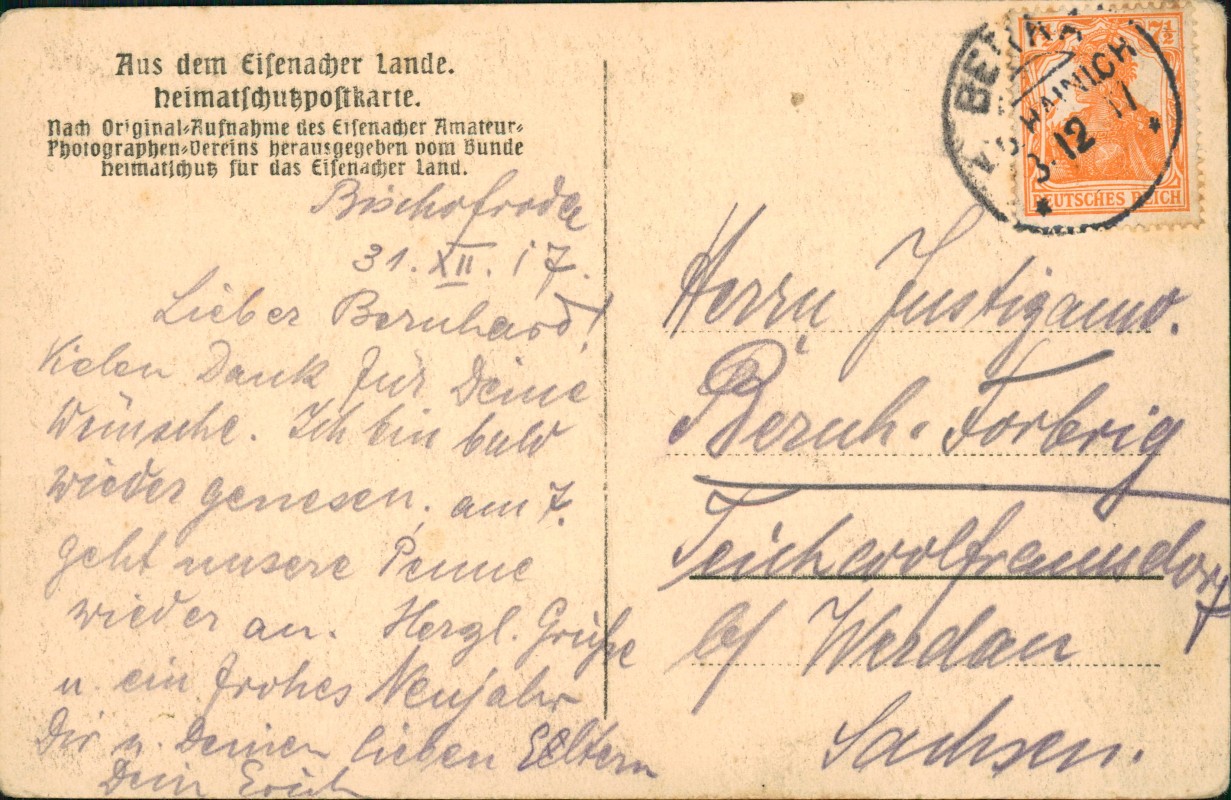 Aus dem Eisenacher Lande.
Heimatschutzpostkarte.
Nach Original-Aufnahme des Eisenacher Amateur-
Photographen-Vereins herausgegeben vom Bunde
Heimatschutz für das Eisenacher Land.
Bischofroda
31. XII. 17.
Lieber Bernhard!
Vielen Dank für Deine
Wünsche. Ich bin bald
wieder genesen, am 7.
geht unsere Penne
wieder an. Herzl. Grüße
u. ein frohes Neujahr
Dir u. Deinen lieben Eltern
Dein Erich
BERKA
HAINICH
12 17
7½
DEUTSCHES REICH
Herrn Justizamw.
Bernh. Forbrig
Teichwolframsdorf
b/ Werdau
Sachsen.